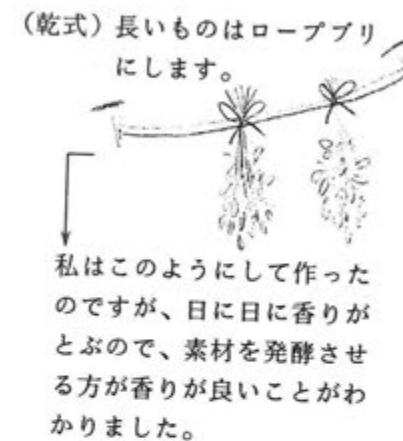 （乾式）長いものはロープブリ
にします。
私はこのようにして作った
のですが、日に日に香りが
とぶので、素材を発酵させ
る方が香りが良いことがわ
かりました。